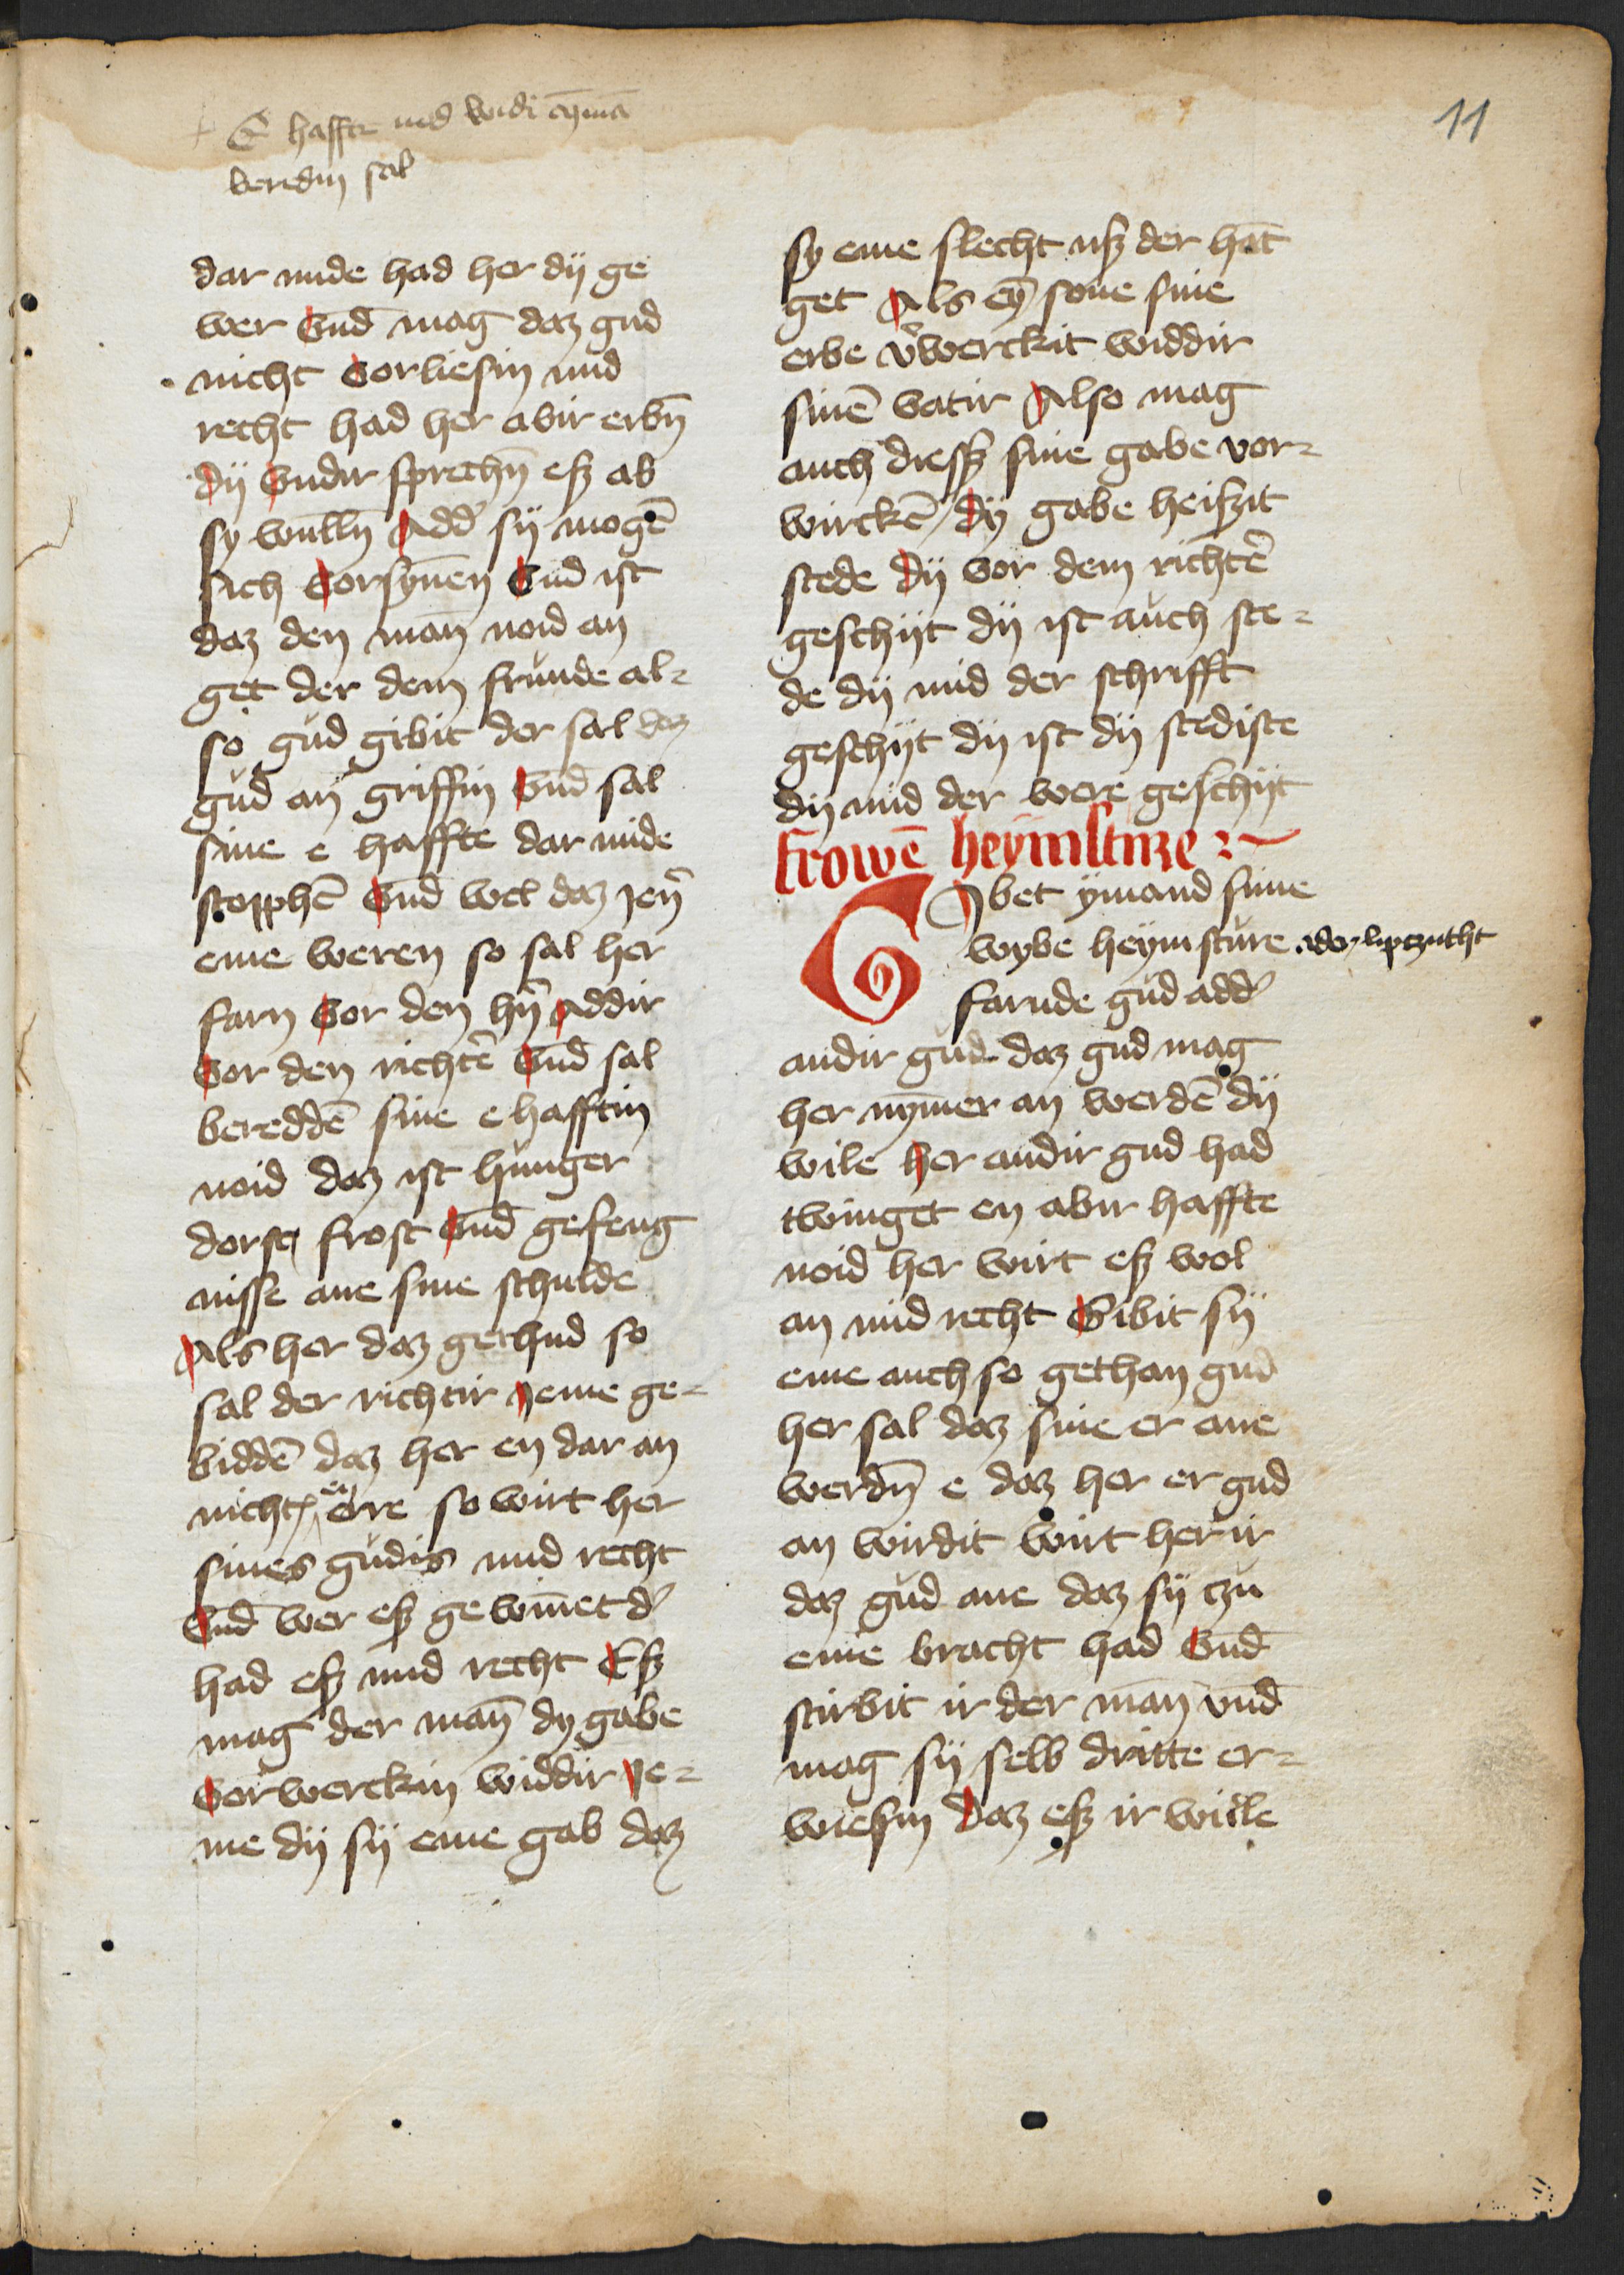 11
E hafft
beredin sal
dar mide had her dij ge
wer Vnd mag daz gud
nicht vorliesin mid
recht had her abir erbn̄
dij Vndir sprechn̄ esz ab
sy wulln̄ Add' sij mogē
sich vorsynnen Vnd ist
daz den man̄ noid an
get der dem frunde al-
so gud gibit der sal daz
gud an griffin Vnd sal
sine e haffte dar mide
stopphē Vnd wel daz jen̄
eme weren so sal her
farn vor den hn̄ Addir
Vor den richtē Vnd sal
bereddē sine e hafftin
noid daz ist hunger
dorst frost Vnd gefeng
nisse ane sine schulde
Als her daz gethud so
sal der richtir Jeme ge-
biddē daz her en dar an
nicht erre so wirt her
sines gudis mid recht
Vnd wer esz gewīnet d'
had esz mid recht Esz
mag der man̄ dy gabe
Vorwerckin widdir Je-
me dij sij eme gab daz
sy eme slecht usz der hant
get Als eyn̄ sone sine
erbe v'werckit widdir
sinē vatir Also mag
auch diesz sine gabe vor-
wirckē dij gabe heiszit
stede dij vor dem richtē
geschijt dij ist auch ste-
de dij mid der schrifft
geschijt dij ist dij stediste
dij mid der were geschijt
Frowē heymsture
GJbet ymand sime
wybe heymsture ader lipczucht
farnde gud add'
andir gud daz gud mag
her nymer an werdē dij
wile her andir gud had
twinget en abir haffte
noid her wirt esz wol
an mid recht Gibit sij
eme auch so gethan gud
her sal daz sine er ane
werdn̄ e daz her er gud
an wirdit wirt her ir
daz gud ane daz sij czu
eme bracht had Vnd
stirbit ir der man̄ vnd
mag sij selb dritte er-
wiesin daz esz ir wille